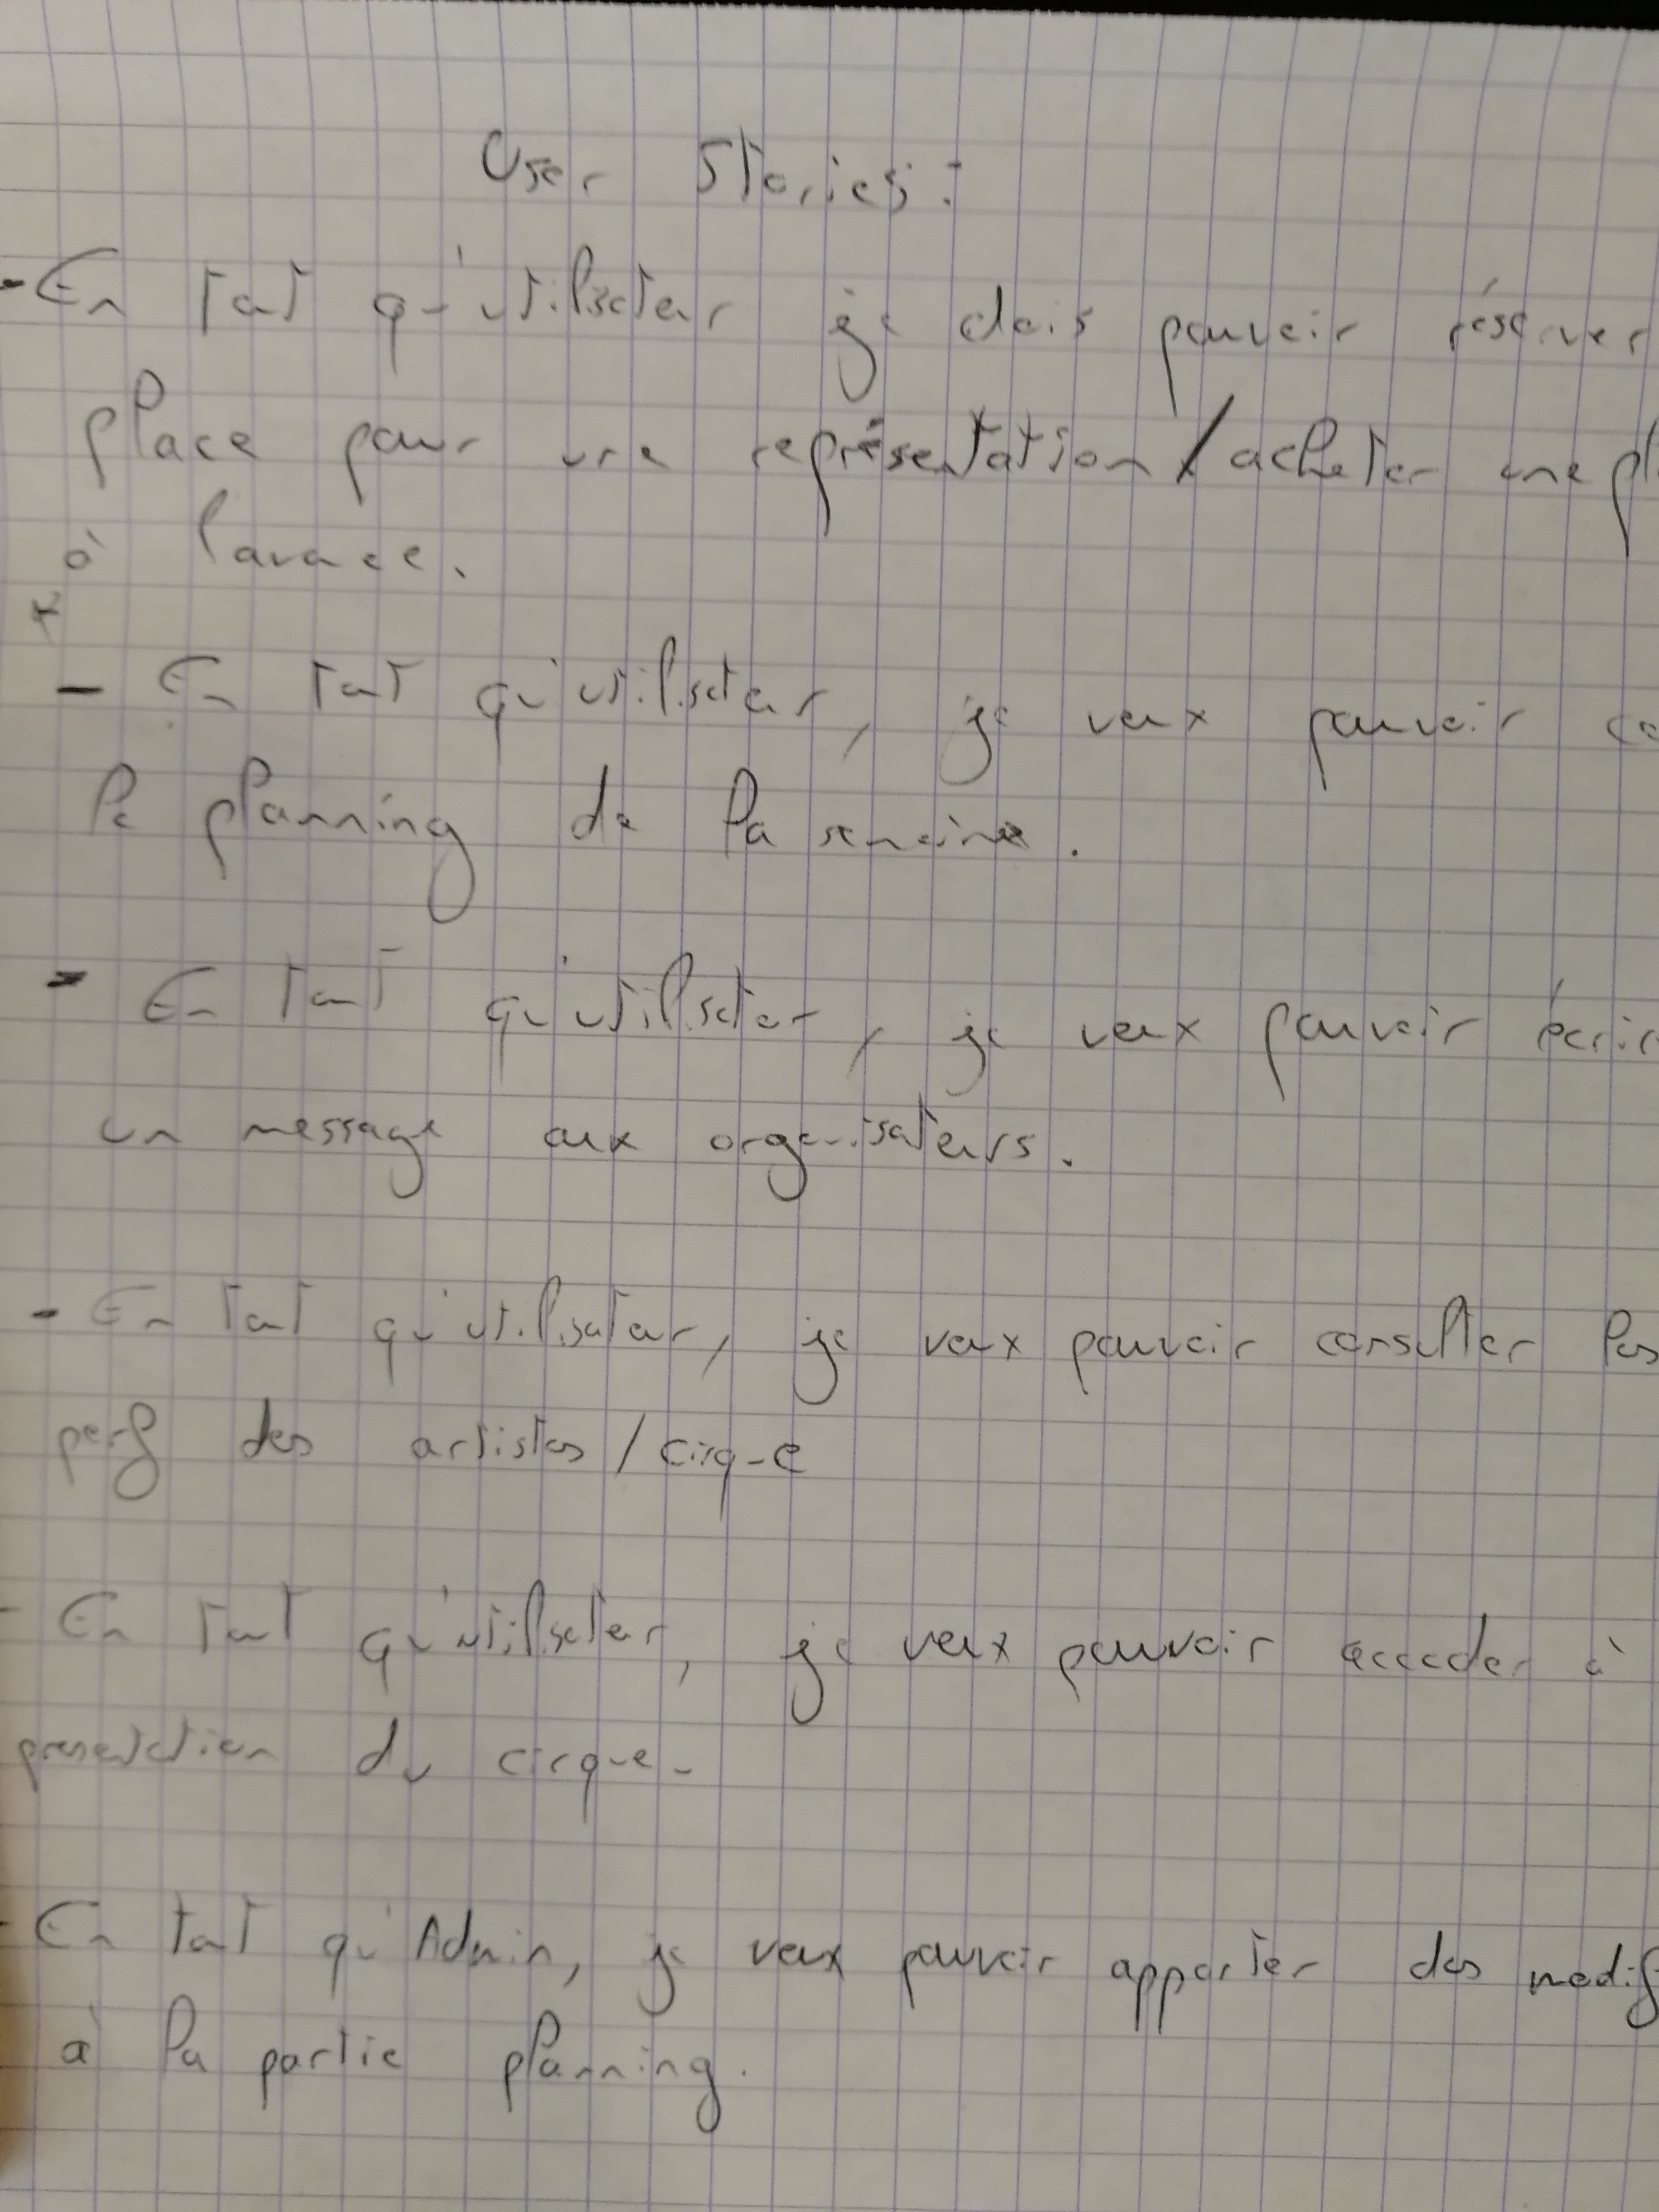 User Stories :
- En tant qu'utilisateur je dois pouvoir réserver
place pour une représentation / acheter une pl
à l'avance.
- En tant qu'utilisateur, je veux pouvoir co
le planning de la semaine.
- En tant qu'utilisateur, je veux pouvoir écrir
un message aux organisateurs.
- En tant qu'utilisateur, je veux pouvoir consulter les
perf des artistes / cirque
- En tant qu'utilisateur, je veux pouvoir acceder à
presentation du cirque.
- En tant qu'Admin, je veux pouvoir apporter des modif
à la partie planning.